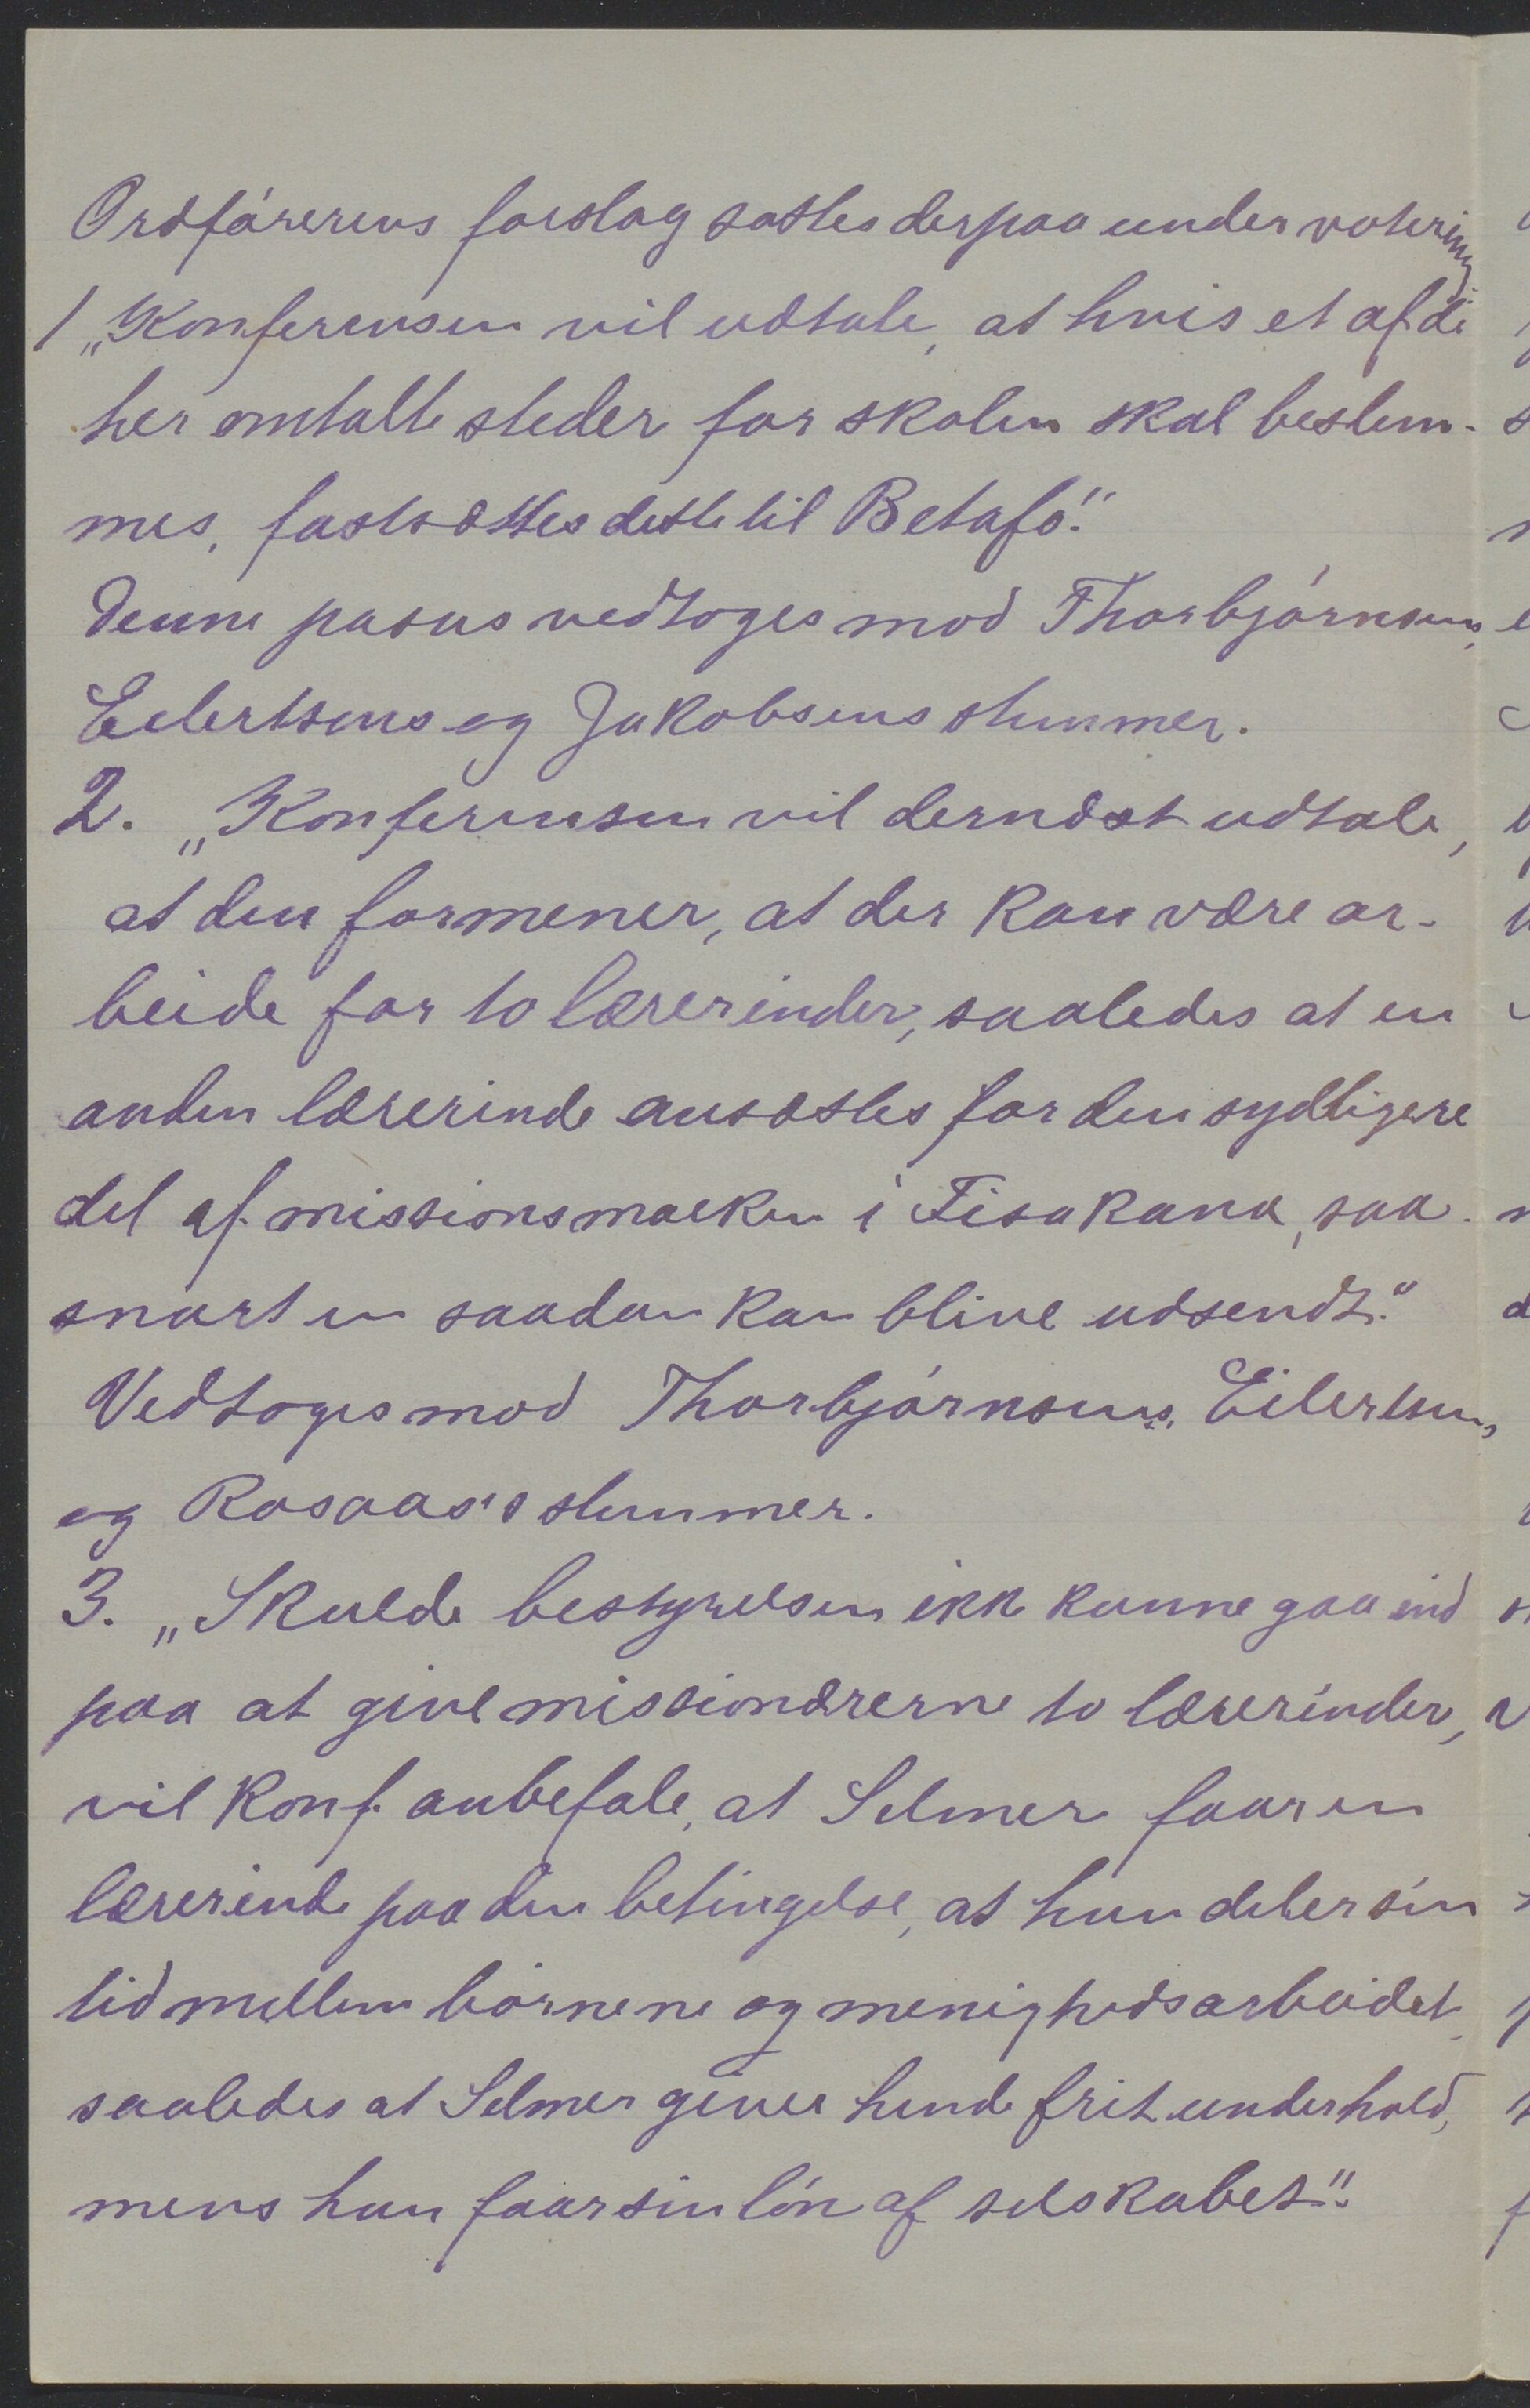 Ordførerens forslag sattes derpaa under votering
1 „Konferensen vil udtale, at hvis et af de
her omtalte steder for skolen skal bestem-
mes, fastsættes dette til Betafo."
Denne passus vedtoges mod Thorbjørnsens,
Eilertsens og Jakobsens stemmer.
2. „Konferensen vil dernæst udtale,
at den formener, at der kan være ar-
beide for to lærerinder, saaledes at en
anden lærerinde ansættes for den sydligere
del af missionsmarken i Fisakana, saa
snart en saadan kan blive udsendt."
Vedtoges mod Thorbjørnsens, Eilertsens
og Rosaas's stemmer.
3. „Skulde bestyrelsen ikke kunne gaa ind
paa at give missionærerne to lærerinder,
vil Konf. anbefale, at Selmer faar en
lærerinde paa den betingelse, at hun deler sin
tid mellem børnene og menighedsarbeidet,
saaledes at Selmer giver hende frit underhold,
mens hun faar sin løn af selskabet".